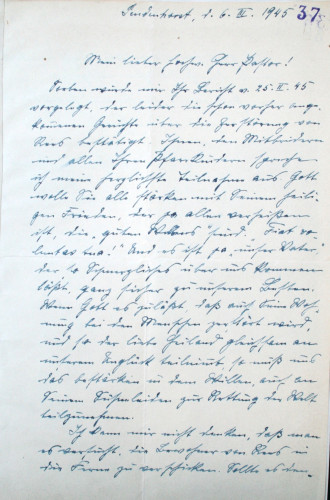 Sendenhorst, d. 6. III. 1945 37
Mein lieber hochw. Herr Pastor!
Soeben wurde mir Ihr Bericht v. 25. II. 45
vorgelegt, der leider die schon vorher ange-
kommenen Gerüchte über die Zerstörung von
Rees bestätigt. Ihnen, den Mitbrüdern
und allen Ihren Pfarrkindern spreche
ich meine herzlichste Teilnahme aus. Gott
wolle Sie alle stärken mit Seinem heili-
gen Frieden, der ja allen verheißen
ist, die „guten Willens" sind. „Fiat vo-
luntas tua!" Und es ist ja „unser Vater",
der so Schmerzliches über uns kommen
läßt, ganz sicher zu unserem Besten.
Wenn Gott es zuläßt, daß auch Seine Woh-
nung bei den Menschen zerstört wird
und so der liebe Heiland gleichsam an
unserem Unglück teilnimmt, so muß uns
das bestärken in dem Willen, auch an
Seinem Sühneleiden zur Rettung der Welt
teilzunehmen.
Ich kann mir nicht denken, daß man
es versucht, die Bewohner von Rees in
die Ferne zu verschicken. Sollte es den-